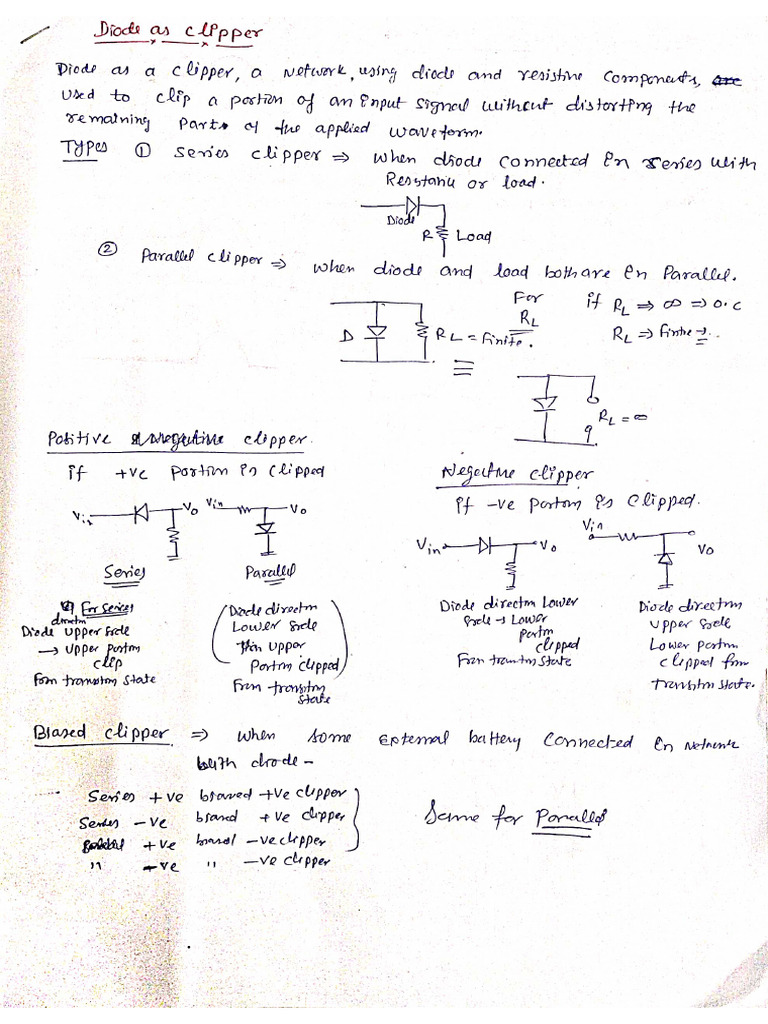 Diode as clipper
Diode as a clipper, a network, using diode and resistive components,
used to clip a portion of an input signal without distorting the
remaining parts of the applied waveform.
Types ① Series clipper ⇒ when diode connected in series with
Resistance or load.
Diode
R Load
② Parallel clipper ⇒ when diode and load both are in Parallel.
D
RL = finite.
For RL
if RL ⇒ ∞ ⇒ o.c
RL ⇒ finite →
≡
RL = ∞
Positive clipper.
if +ve portion is clipped
Vin Vo Vin Vo
Series Parallel
For series
Diode direction upper side
→ upper portion
clip
From transition state
Diode direction
Lower side
then upper
portion clipped
From transition
state
Negative clipper
if -ve portion is clipped.
Vin Vo Vin Vo
Diode direction Lower
side → Lower
portion
clipped
From transition state
Diode direction
upper side
Lower portion
clipped from
transition state.
Biased clipper ⇒ when some external battery connected in network
with diode -
Series +ve biased +ve clipper
Series -ve biased +ve clipper
+ve biased -ve clipper
" -ve " -ve clipper
Same for Parallel